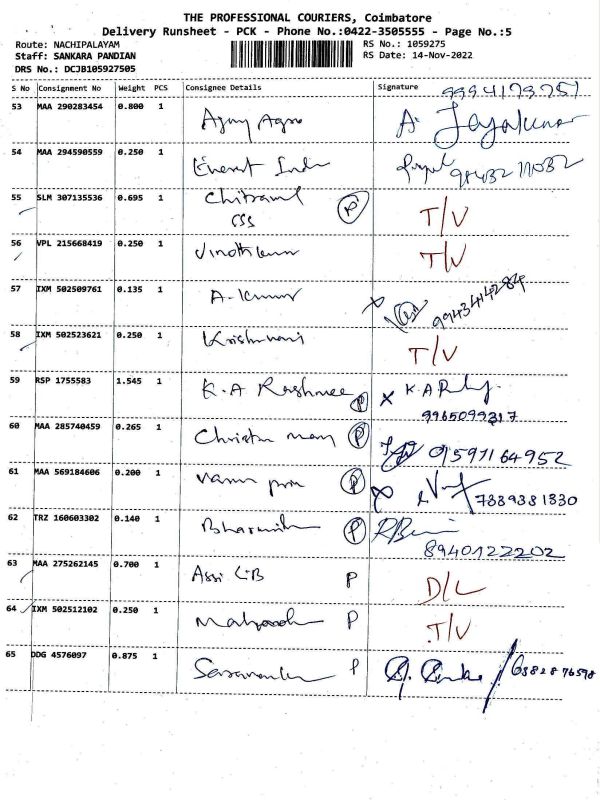 THE PROFESSIONAL COURIERS, Coimbatore
Delivery Runsheet - PCK - Phone No.:0422-3505555 - Page No.:5
Route: NACHIPALAYAM
RS No.: 1059275
Staff: SANKARA PANDIAN
RS Date: 14-Nov-2022
DRS No.: DCJB105927505
S No Consignment No Weight PCS Consignee Details Signature
9994173751
53 MAA 290283454 0.800 1 A. Jayakumar
54 MAA 294590559 0.250 1
55 SLM 307135536 0.695 1 P T/V
CSS
56 VPL 215668419 0.250 1 Vinothkumar T/V
57 IXM 502509761 0.135 1 A-Kumar 9943414284
58 IXM 502523621 0.250 1 Krishnaveni T/V
59 RSP 1755583 1.545 1 K.A Rashmee P X K.A
9965099217
60 MAA 285740459 0.265 1 P 9597164952
61 MAA 569184606 0.200 1 P 7339381330
62 TRZ 160603302 0.140 1 P
8940122202
63 MAA 275262145 0.700 1 P D/L
64 IXM 502512102 0.250 1 P T/V
65 DDG 4576097 0.875 1 P 6382876598